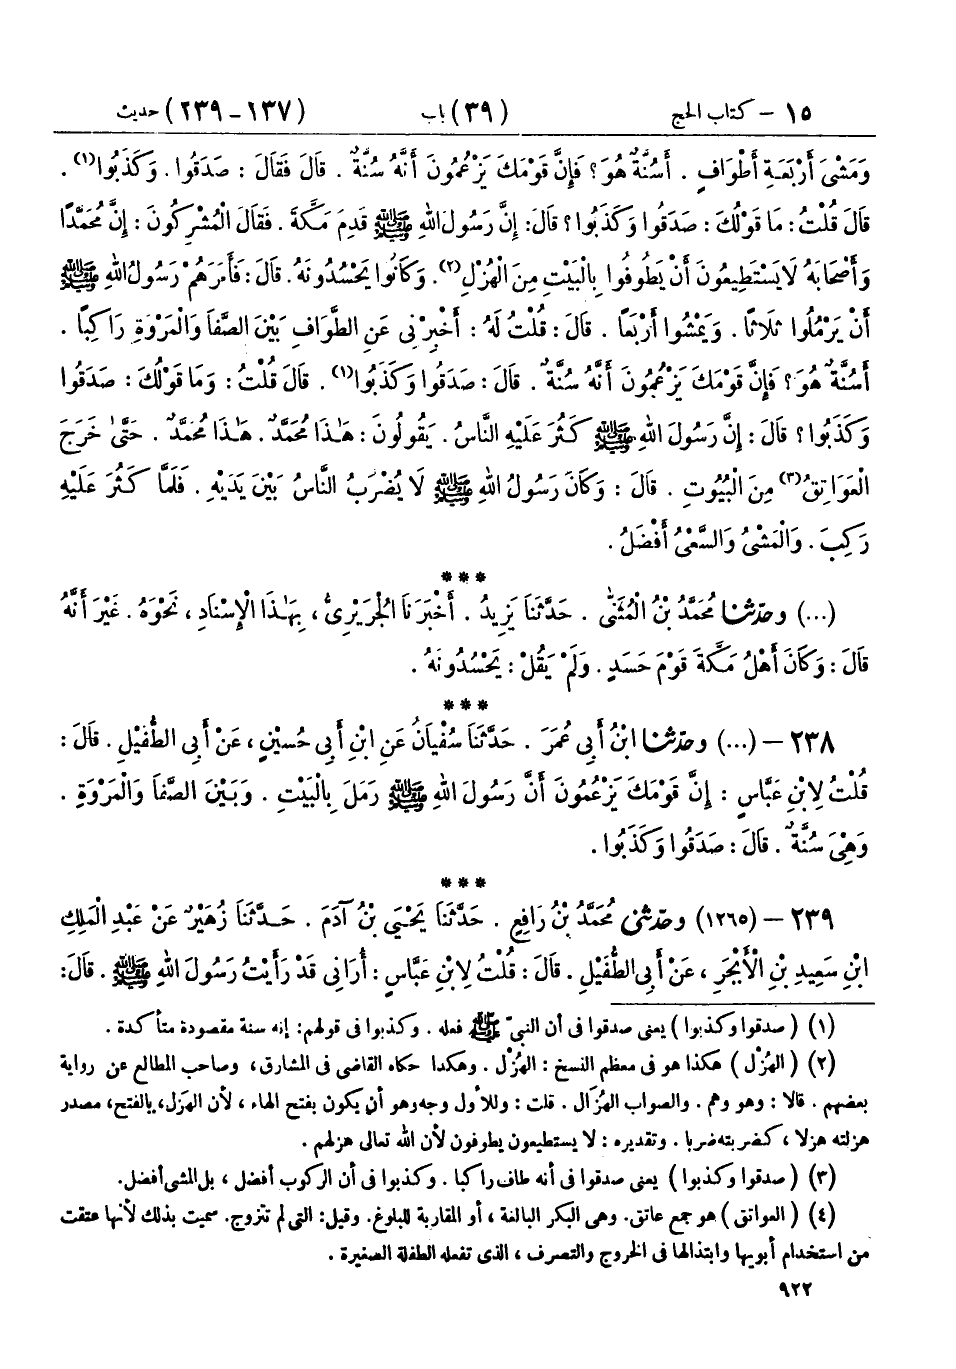 ١٥ – كتاب الحج (٣٩) باب (١٣٧ – ٢٣٩) حديث
وَمَشْىَ أَرْبَعَةِ أَطْوَافٍ . أَسُنَّةٌ هُوَ ؟ فَإِنَّ قَوْمَكَ يَزْعُمُونَ أَنَّهُ سُنَّةٌ . قَالَ فَقَالَ : صَدَقُوا . وَكَذَبُوا(١) .
قَالَ قُلْتُ : مَا قَوْلُكَ : صَدَقُوا وَكَذَبُوا ؟ قَالَ : إِنَّ رَسُولَ اللهِ ﷺ قَدِمَ مَكَّةَ . فَقَالَ الْمُشْرِكُونَ : إِنَّ مُحَمَّدًا
وَأَصْحَابَهُ لَا يَسْتَطِيعُونَ أَنْ يَطُوفُوا بِالْبَيْتِ مِنَ الْهُزْلِ(٢) . وَكَانُوا يَحْسُدُونَهُ . قَالَ : فَأَمَرَهُمْ رَسُولُ اللهِ ﷺ
أَنْ يَرْمُلُوا ثَلَاثًا . وَيَمْشُوا أَرْبَعًا . قَالَ : قُلْتُ لَهُ : أَخْبِرْنِي عَنِ الطَّوَافِ بَيْنَ الصَّفَا وَالْمَرْوَةِ رَاكِبًا .
أَسُنَّةٌ هُوَ ؟ فَإِنَّ قَوْمَكَ يَزْعُمُونَ أَنَّهُ سُنَّةٌ . قَالَ : صَدَقُوا وَكَذَبُوا(١) . قَالَ قُلْتُ : وَمَا قَوْلُكَ : صَدَقُوا
وَكَذَبُوا ؟ قَالَ : إِنَّ رَسُولَ اللهِ ﷺ كَثُرَ عَلَيْهِ النَّاسُ . يَقُولُونَ : هَذَا مُحَمَّدٌ . هَذَا مُحَمَّدٌ . حَتَّى خَرَجَ
الْعَوَاتِقُ(٣) مِنَ الْبُيُوتِ . قَالَ : وَكَانَ رَسُولُ اللهِ ﷺ لَا يُضْرَبُ النَّاسُ بَيْنَ يَدَيْهِ . فَلَمَّا كَثُرَ عَلَيْهِ
رَكِبَ . وَالْمَشْىُ وَالسَّعْىُ أَفْضَلُ .
***
(...) وحَدَّثَنَا مُحَمَّدُ بْنُ الْمُثَنَّى . حَدَّثَنَا يَزِيدُ . أَخْبَرَنَا الْجُرَيْرِيُّ ، بِهَذَا الْإِسْنَادِ ، نَحْوَهُ . غَيْرَ أَنَّهُ
قَالَ : وَكَانَ أَهْلُ مَكَّةَ قَوْمَ حَسَدٍ . وَلَمْ يَقُلْ : يَحْسُدُونَهُ .
***
٢٣٨ – (...) وحَدَّثَنَا ابْنُ أَبِي عُمَرَ . حَدَّثَنَا سُفْيَانُ عَنِ ابْنِ أَبِي حُسَيْنٍ ، عَنْ أَبِي الطُّفَيْلِ . قَالَ :
قُلْتُ لِابْنِ عَبَّاسٍ : إِنَّ قَوْمَكَ يَزْعُمُونَ أَنَّ رَسُولَ اللهِ ﷺ رَمَلَ بِالْبَيْتِ . وَبَيْنَ الصَّفَا وَالْمَرْوَةِ .
وَهِيَ سُنَّةٌ . قَالَ : صَدَقُوا وَكَذَبُوا .
***
٢٣٩ – (١٢٦٥) وحَدَّثَنِي مُحَمَّدُ بْنُ رَافِعٍ . حَدَّثَنَا يَحْيَى بْنُ آدَمَ . حَدَّثَنَا زُهَيْرٌ عَنْ عَبْدِ الْمَلِكِ
ابْنِ سَعِيدِ بْنِ الْأَبْجَرِ ، عَنْ أَبِي الطُّفَيْلِ . قَالَ : قُلْتُ لِابْنِ عَبَّاسٍ : أُرَانِي قَدْ رَأَيْتُ رَسُولَ اللهِ ﷺ . قَالَ :
(١) ( صدقوا وكذبوا ) يعنى صدقوا فى أن النبىّ ﷺ فعله . وكذبوا فى قولهم : إنه سنة مقصودة متأكدة .
(٢) ( الهُزْل ) هكذا هو فى معظم النسخ : الهُزْل . وهكذا حكاه القاضى فى المشارق ، وصاحب المطالع عن رواية
بعضهم . قالا : وهو وهم . والصواب الهُزَال . قلت : وللأول وجه وهو أن يكون بفتح الهاء ، لأن الهَزل ، بالفتح ، مصدر
هزلته هزلا ، كضربته ضربا . وتقديره : لا يستطيعون يطوفون لأن الله تعالى هزلهم .
(٣) ( صدقوا وكذبوا ) يعنى صدقوا فى أنه طاف راكبا . وكذبوا فى أن الركوب أفضل ، بل المشى أفضل .
(٤) ( العواتق ) هو جمع عاتق . وهى البكر البالغة ، أو المقاربة للبلوغ . وقيل : التى لم تتزوج . سميت بذلك لأنها عتقت
من استخدام أبويها وابتذالها فى الخروج والتصرف ، الذى تفعله الطفلة الصغيرة .
٩٢٢